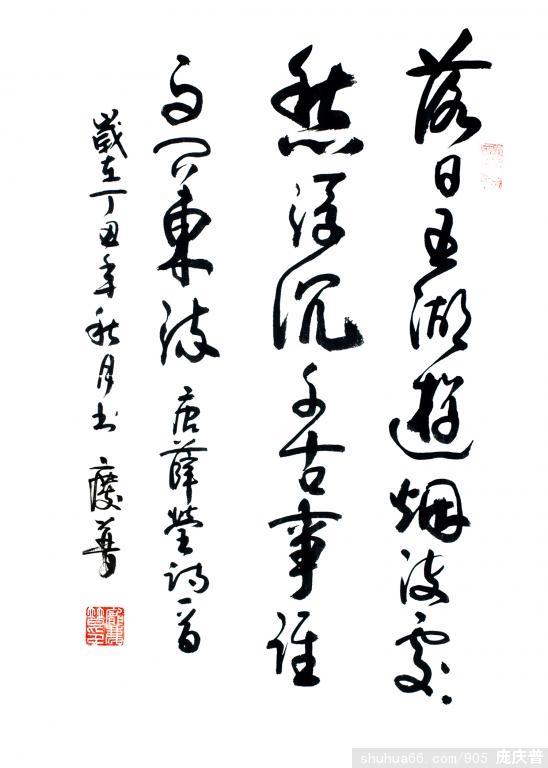 落日五湖遊烟波處々
愁浮沉千古事谁
与问東流 唐薛瑩诗一首
歲在丁丑年秋月书 慶普
shuhua66.com/905 庞庆普